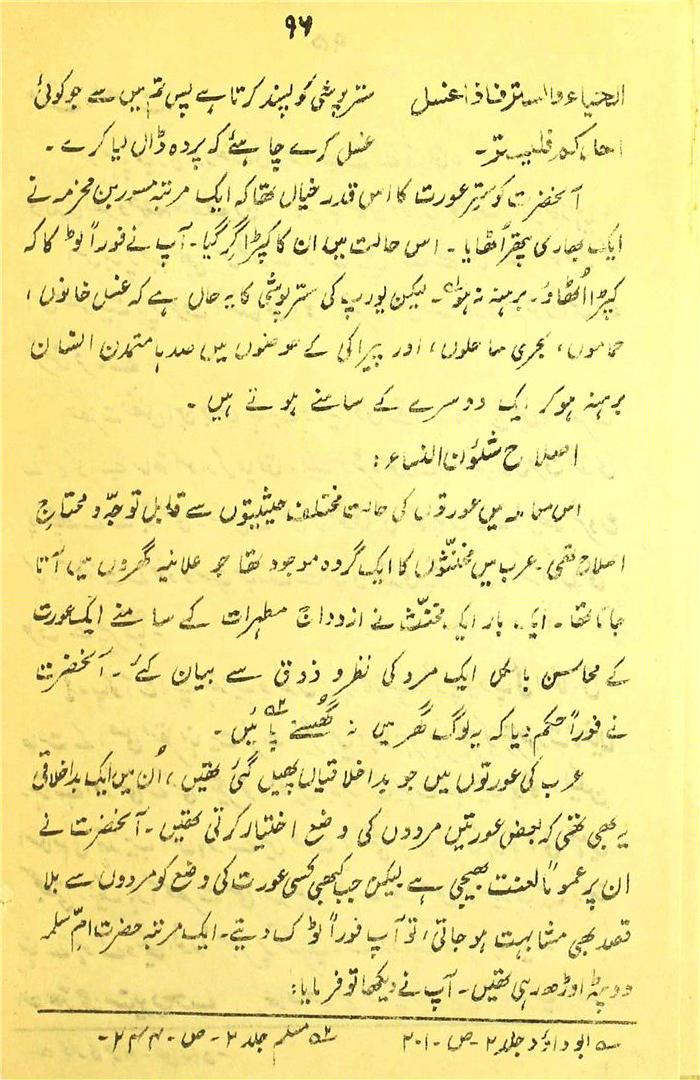 ۹۶
الحیاء والستر فاذا اغتسل ستر پوشی کو پسند کرتا ہے پس تم میں سے جو کوئی
احدکم فلیستر۔ غسل کرے چاہئے کہ پردہ ڈال لیا کرے۔
آنحضرت کو ستر عورت کا اس قدر خیال تھا کہ ایک مرتبہ مسور بن مخرمہ نے
ایک بھاری پتھر اُٹھایا۔ اس حالت میں ان کا کپڑا گر گیا۔ آپ نے فوراً ٹوکا کہ
کپڑا اُٹھاؤ۔ برہنہ نہ ہو؎۱۔ لیکن یورپ کی ستر پوشی کا یہ حال ہے کہ غسل خانوں،
حماموں، بحری ساحلوں، اور پیراکی کے حوضوں میں صدہا متمدن انسان
برہنہ ہو کر ایک دوسرے کے سامنے ہوتے ہیں۔
اصلاح شئون النساء:
اس سلسلہ میں عورتوں کی حالت مختلف حیثیتوں سے قابل توجہ و محتاج
اصلاح تھی۔ عرب میں مخنثوں کا ایک گروہ موجود تھا جو علانیہ گھروں میں آتا
جاتا تھا۔ ایک بار ایک مخنّث نے ازدواج مطہرات کے سامنے ایک عورت
کے محاسن بالکل ایک مرد کی نظر و ذوق سے بیان کئے۔ آنحضرت
نے فوراً حکم دیا کہ یہ لوگ گھر میں نہ گھسنے پائیں؎۲۔
عرب کی عورتوں میں جو بداخلاقیاں پھیل گئی تھیں، اُن میں ایک بداخلاقی
یہ بھی تھی کہ بعض عورتیں مردوں کی وضع اختیار کرتی تھیں۔ آنحضرت نے
ان پر عموماً لعنت بھیجی ہے لیکن جب کبھی کسی عورت کی وضع کو مردوں سے بلا
قصد بھی مشابہت ہو جاتی، تو آپ فوراً ٹوک دیتے۔ ایک مرتبہ حضرت امّ سلمہ
دوپٹہ اوڑھ رہی تھیں۔ آپ نے دیکھا تو فرمایا:
؎۱ ابو داؤد جلد ۲۔ ص۔ ۲۰۱ ؎۲ مسلم جلد ۲۔ ص۔ ۲۴۴۔